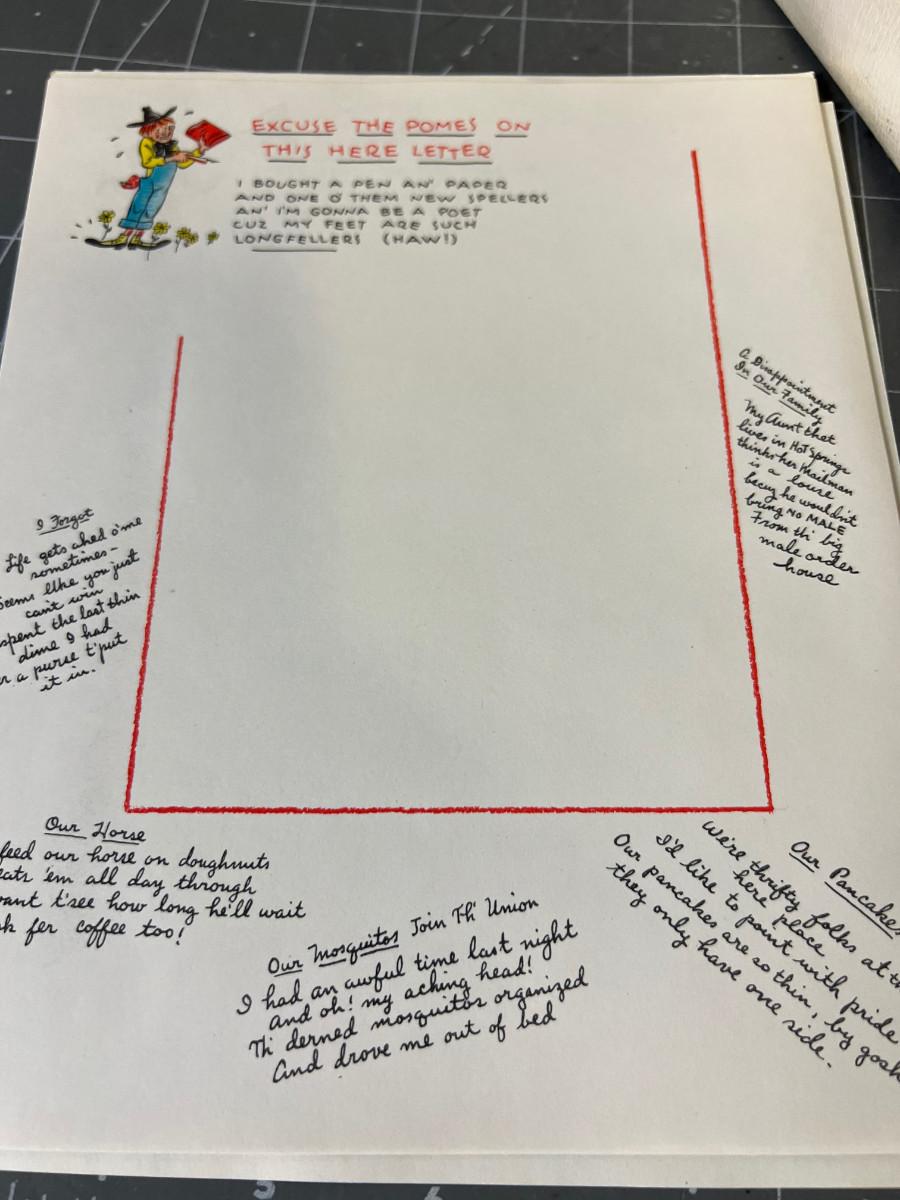 EXCUSE THE POMES ON
THIS HERE LETTER
I BOUGHT A PEN AN' PAPER
AND ONE O' THEM NEW SPELLERS
AN' I'M GONNA BE A POET
CUZ MY FEET ARE SUCH
LONGFELLERS (HAW!)
A Disappointment
In Our Family
My Aunt thet
lives in Hot Springs
thinks her Mailman
is a louse
becuz he wouldn't
bring NO MALE
From th' big
male order
house
I Forgot
Life gets ahed o' me
sometimes-
seems like you just
can't win
spent the last thin
dime I had
a purse t'put
it in.
Our Horse
feed our horse on doughnuts
eats 'em all day through
want t'see how long he'll wait
fer coffee too!
Our Mosquitos Join Th' Union
I had an awful time last night
and oh! my aching head!
Th' derned mosquitos organized
And drove me out of bed
Our Pancakes
We're thrifty folks at th
here place
I'd like to point with pride
Our pancakes are so thin, by gosh
they only have one side.